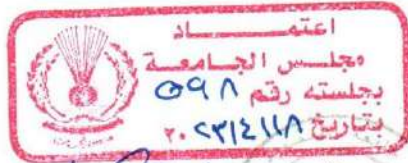 اعتمـــــاد
مجلس الجـامعـة
بجلسته رقم ٥٩٨
بتاريخ ٢٠٢٣/٤/١٨